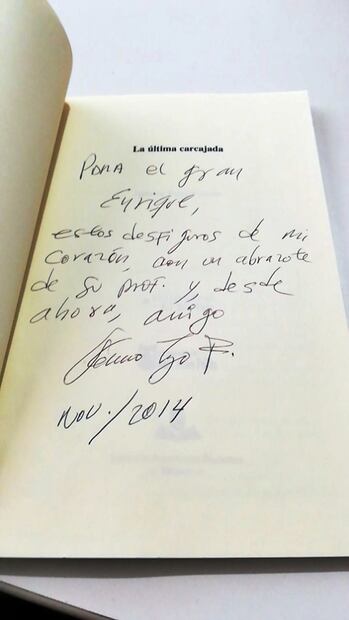 La última carcajada
Para el gran
Enrique,
estos desfiguros de mi
corazón, con un abrazote
de su prof. y, desde
ahora, amigo
R.
Nov./2014